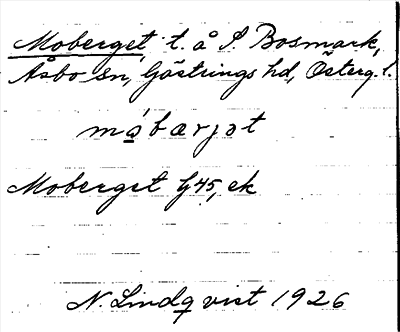 Moberget, t. å S. Bosmark,
Åsbo sn, Göstrings hd, Österg. l.
mábærjət
Moberget G 45, ek
N. Lindqvist 1926